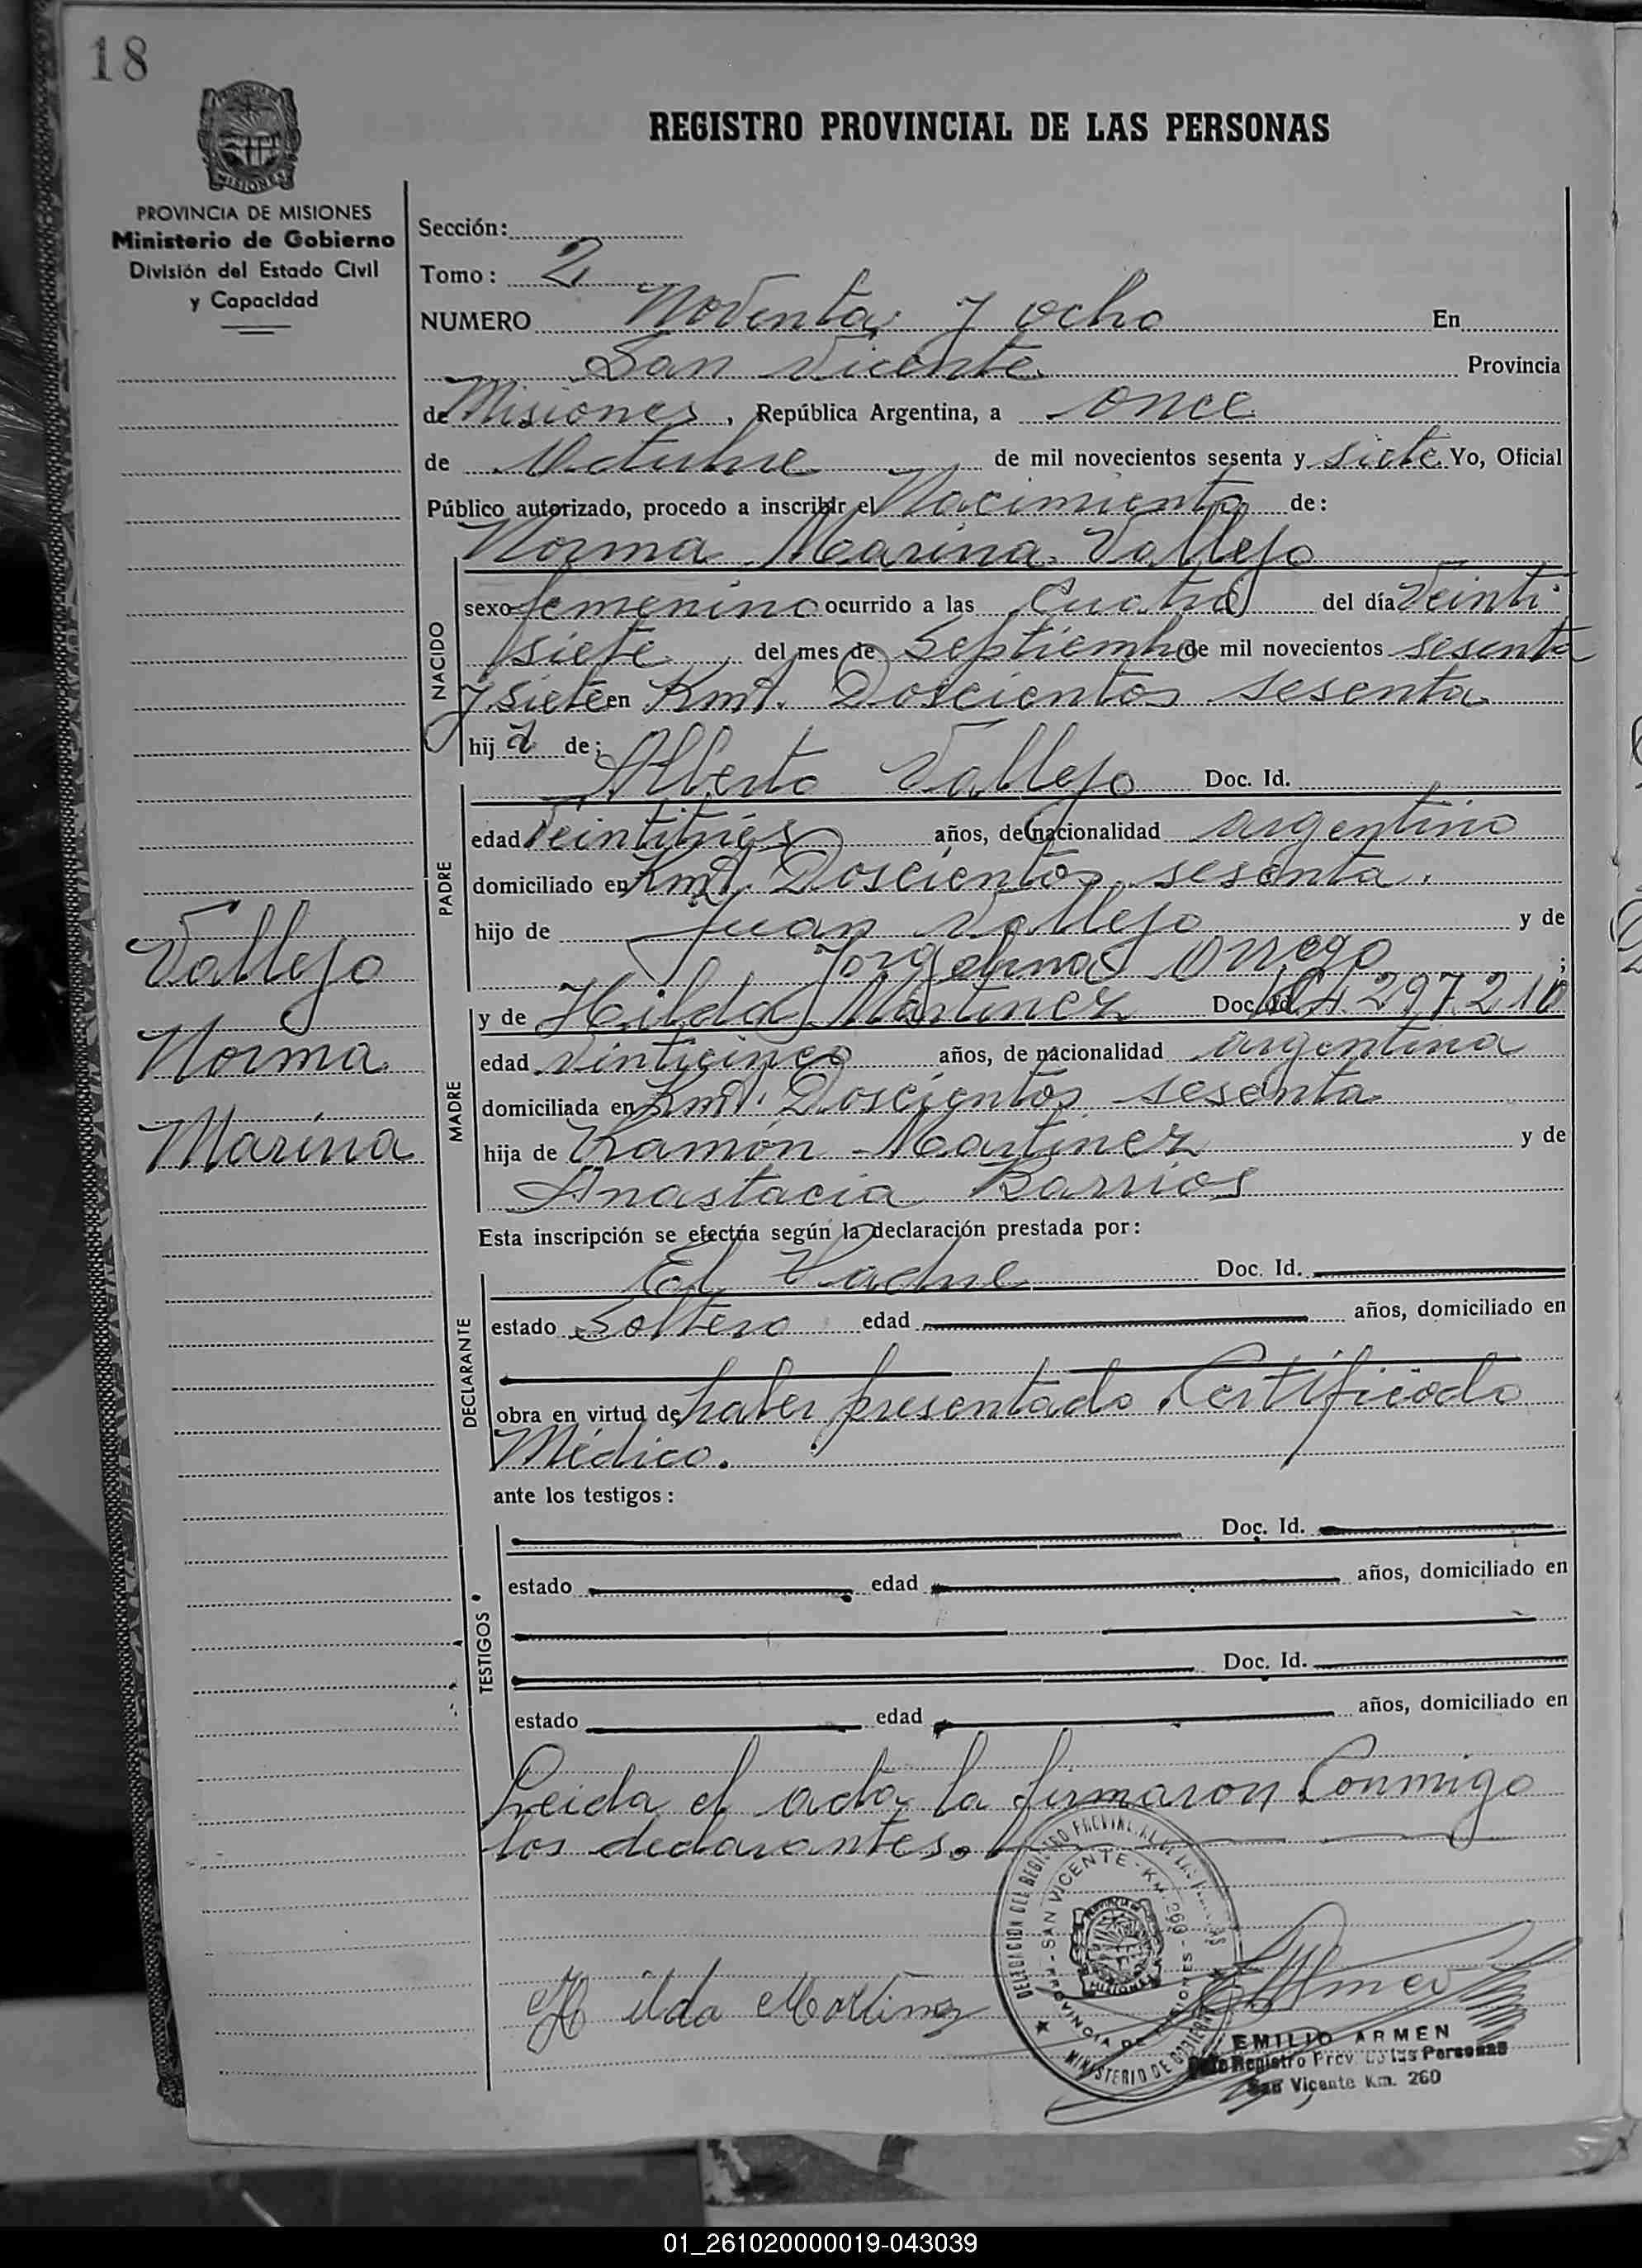 18
REGISTRO PROVINCIAL DE LAS PERSONAS
PROVINCIA DE MISIONES
Ministerio de Gobierno
División del Estado Civil
y Capacidad
Sección:
Tomo: 2
NUMERO Noventa y ocho En
San Vicente Provincia
de Misiones, República Argentina, a once
de Octubre de mil novecientos sesenta y siete Yo, Oficial
Público autorizado, procedo a inscribir el Nacimiento de:
Norma Marina Vallejo
NACIDO
sexo femenino ocurrido a las cuatro del día Veinti
siete del mes de Septiembre de mil novecientos sesenta
y siete en Kmt. Doscientos sesenta
hija de:
Alberto Vallejo Doc. Id.
PADRE
edad Veintitrés años, de nacionalidad argentino
domiciliado en Kmt. Doscientos sesenta.
hijo de Juan Vallejo y de
Orrego;
y de Hilda Martinez Doc. Id. 4.297.210
MADRE
edad Vinticinco años, de nacionalidad argentina
domiciliada en Kmt. Doscientos sesenta
hija de Ramón Martinez y de
Anastacia Barrios
Vallejo
Norma
Marina
Esta inscripción se efectúa según la declaración prestada por:
DECLARANTE
El Padre Doc. Id.
estado Soltero edad años, domiciliado en
obra en virtud de haber presentado Certificado
Médico.
ante los testigos:
TESTIGOS
Doc. Id.
estado edad años, domiciliado en
Doc. Id.
estado edad años, domiciliado en
Leida el acta, la firmaron Conmigo
los declarantes.
DELEGACION DEL REGISTRO PROVINCIAL DE LAS PERSONAS
SAN VICENTE - KM. 260 - PROVINCIA DE MISIONES
MINISTERIO DE GOBIERNO
Hilda Martinez
EMILIO ARMEN
Registro Prov. de las Personas
San Vicente Km. 260
01_261020000019-043039